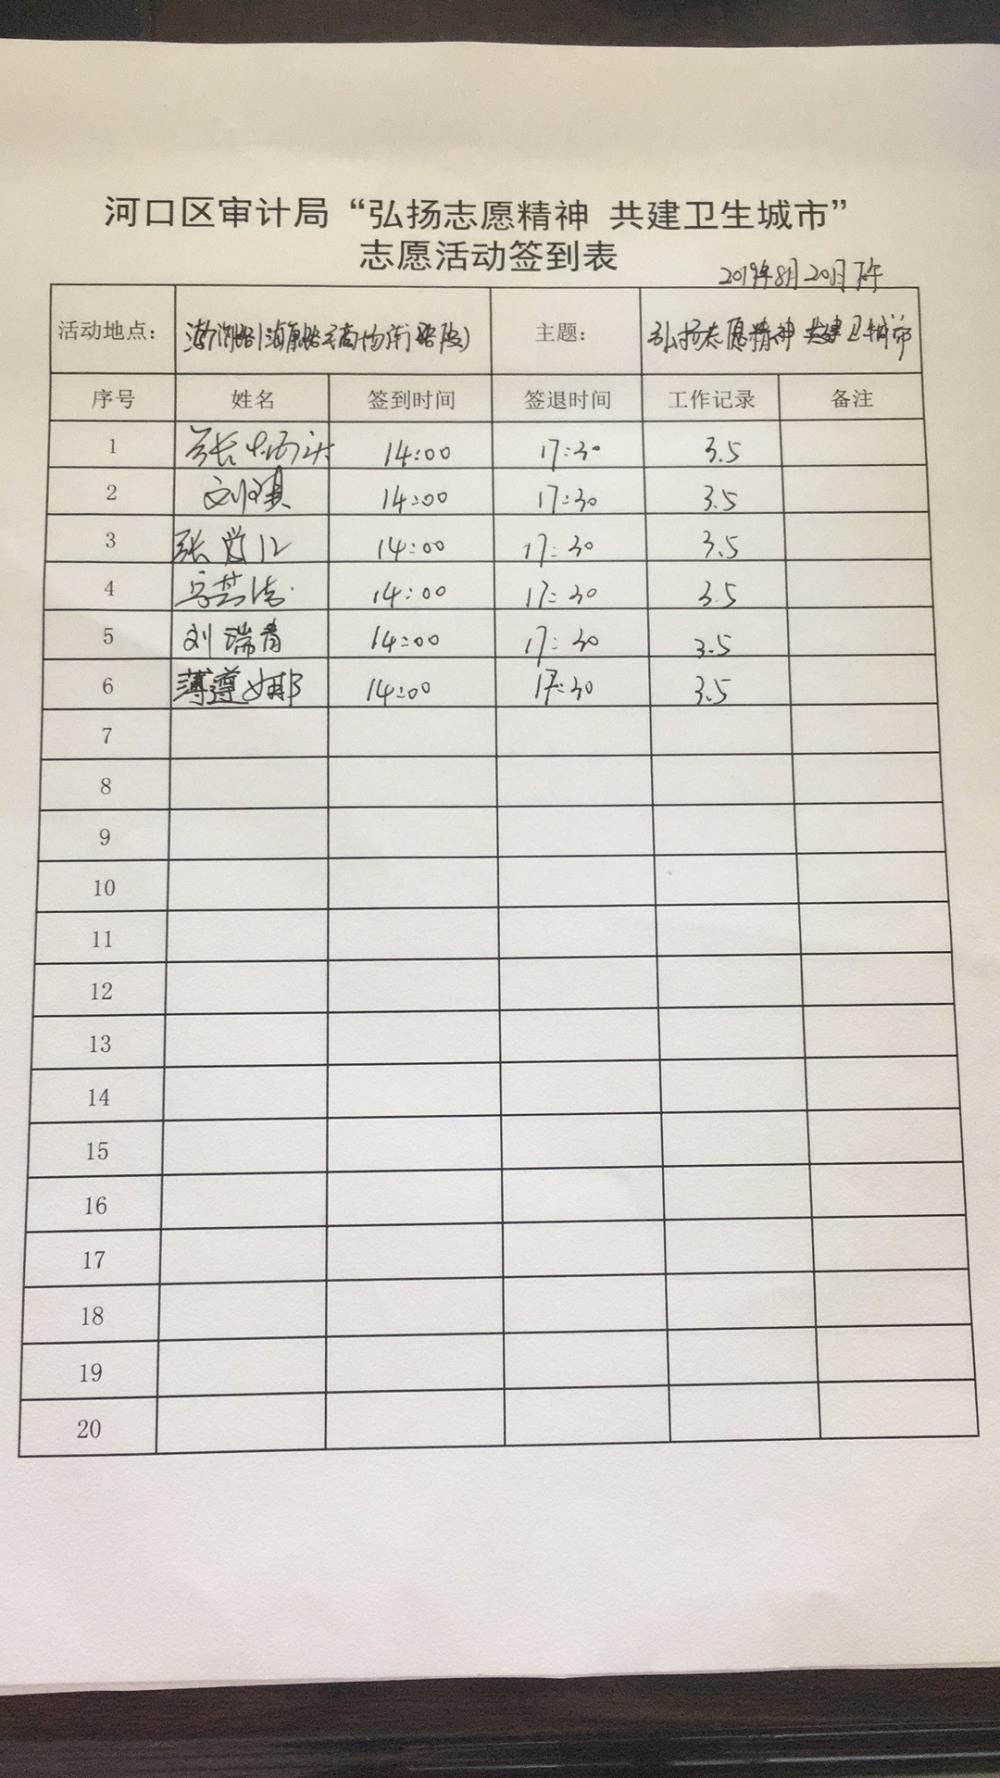 河口区审计局“弘扬志愿精神 共建卫生城市”
志愿活动签到表
2019年8月20日下午
活动地点： 主题： 弘扬志愿精神 共建卫生城市
序号 姓名 签到时间 签退时间 工作记录 备注
1 张 14:00 17:30 3.5
2 刘琪 14:00 17:30 3.5
3 张 14:00 17:30 3.5
4 14:00 17:30 3.5
5 刘瑞青 14:00 17:30 3.5
6 薄遵娜 14:00 17:30 3.5
7
8
9
10
11
12
13
14
15
16
17
18
19
20